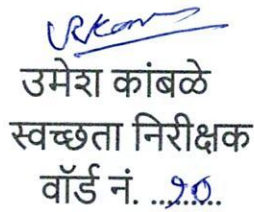 उमेश कांबळे
स्वच्छता निरीक्षक
वॉर्ड नं. ...१०...